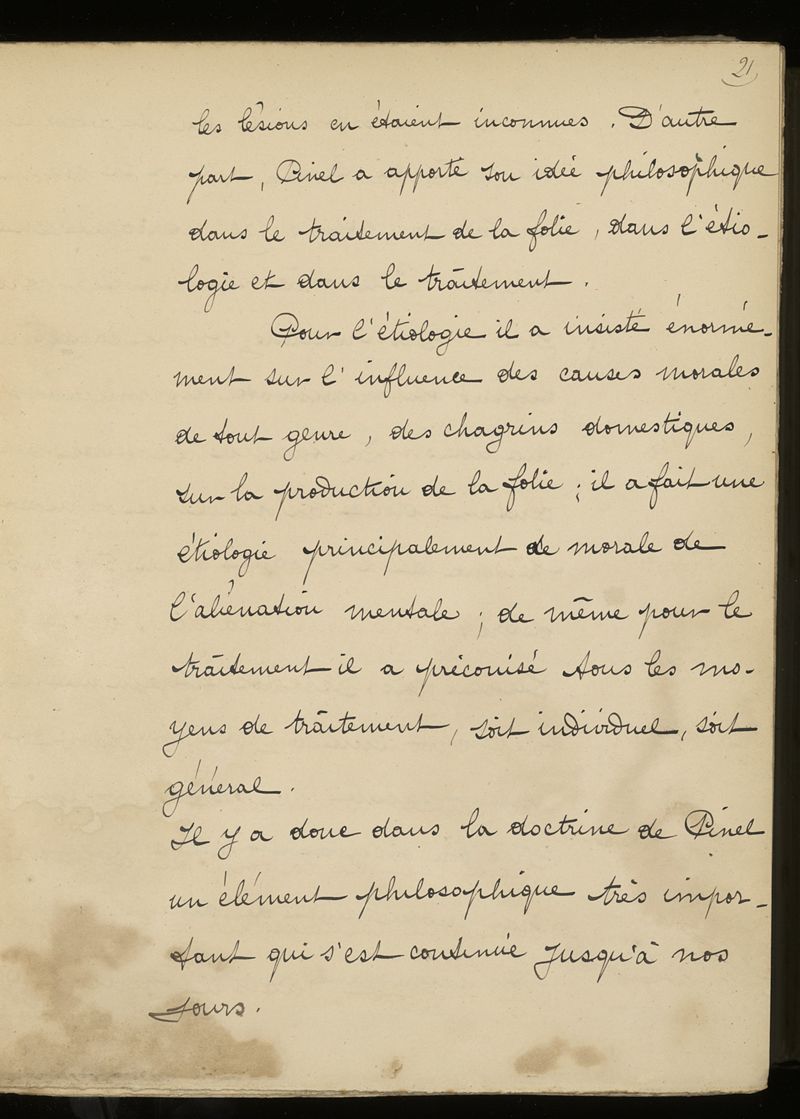 21
les lésions en étaient inconnues. D'autre
part, Pinel a apporté son idée philosophique
dans le traitement de la folie, dans l'étio-
logie et dans le traitement.
Pour l'étiologie il a insisté énormé-
ment sur l'influence des causes morales
de tout genre, des chagrins domestiques,
sur la production de la folie ; il a fait une
étiologie principalement de morale de
l'aliénation mentale ; de même pour le
traitement il a préconisé tous les mo-
yens de traitement, soit individuel, soit
général.
Il y a donc dans la doctrine de Pinel
un élément philosophique très impor-
tant qui s'est continué jusqu'à nos
jours.